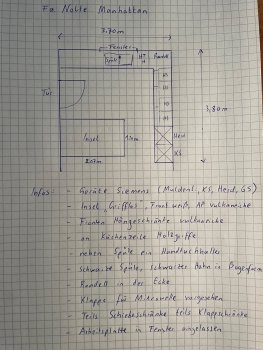 Fa. Nolte Manhattan
3,70m
Fenster
Spüle
HT
H
Rondell
HS
HS
HS
HS
Tür
3,80m
Insel
Herd
KS
Infos:
- Geräte Siemens (Muldenl., KS, Herd, GS)
- Insel "Grifflos", Front weiß, AP vulkaneiche
- Fronten Hängeschränke vulkaneiche
- an Küchenzeile Holzgriffe
- neben Spüle ein Handtuchhalter
- schwarze Spüle, schwarzer Hahn in Bogenform
- Rondell in der Ecke
- Klappe für Mikrowelle vorgesehen
- Teils Schiebeschränke teils Klappschränke
- Arbeitsplatte in Fenster eingelassen